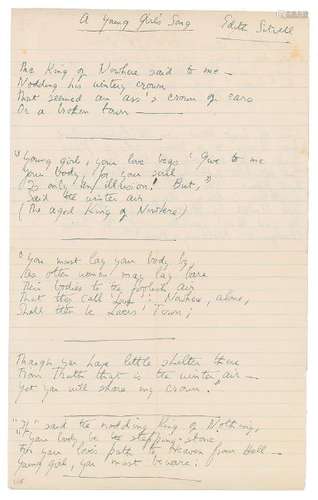 A Young Girl's Song Edith Sitwell
The King of Nowhere said to me —
Nodding his wintry crown
That seemed an ass's crown of ears
Or a broken town —
"Young girl, your love begs 'Give to me
Your body, for your soul
Is only an illusion.' But,"
Said the winter air
(The aged King of Nowhere)
"You must lay your body by,
As other women may lay bare
Their bodies to the foolish air
That they call Love': Nowhere, alone,
Shall then be Lovers' Town;
Though you have little shelter there
From that is the winter air —
Yet you will share my crown."
"If" said the nodding King of Nothing,
"Your body, be the stepping-stone
For your love's path to Heaven from Hell —
Young girl, you must beware!